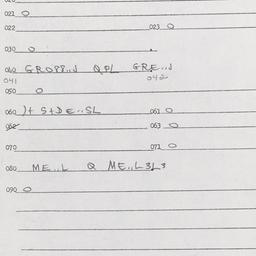 021 O
022 023 O
030 O
040 GROPP..J QPL GRE..J
041 042
050 O
060 )+ S+DE..SL 061 O
062 063 O
070 071 O
080 ME..L Q ME..L3L3
090 O